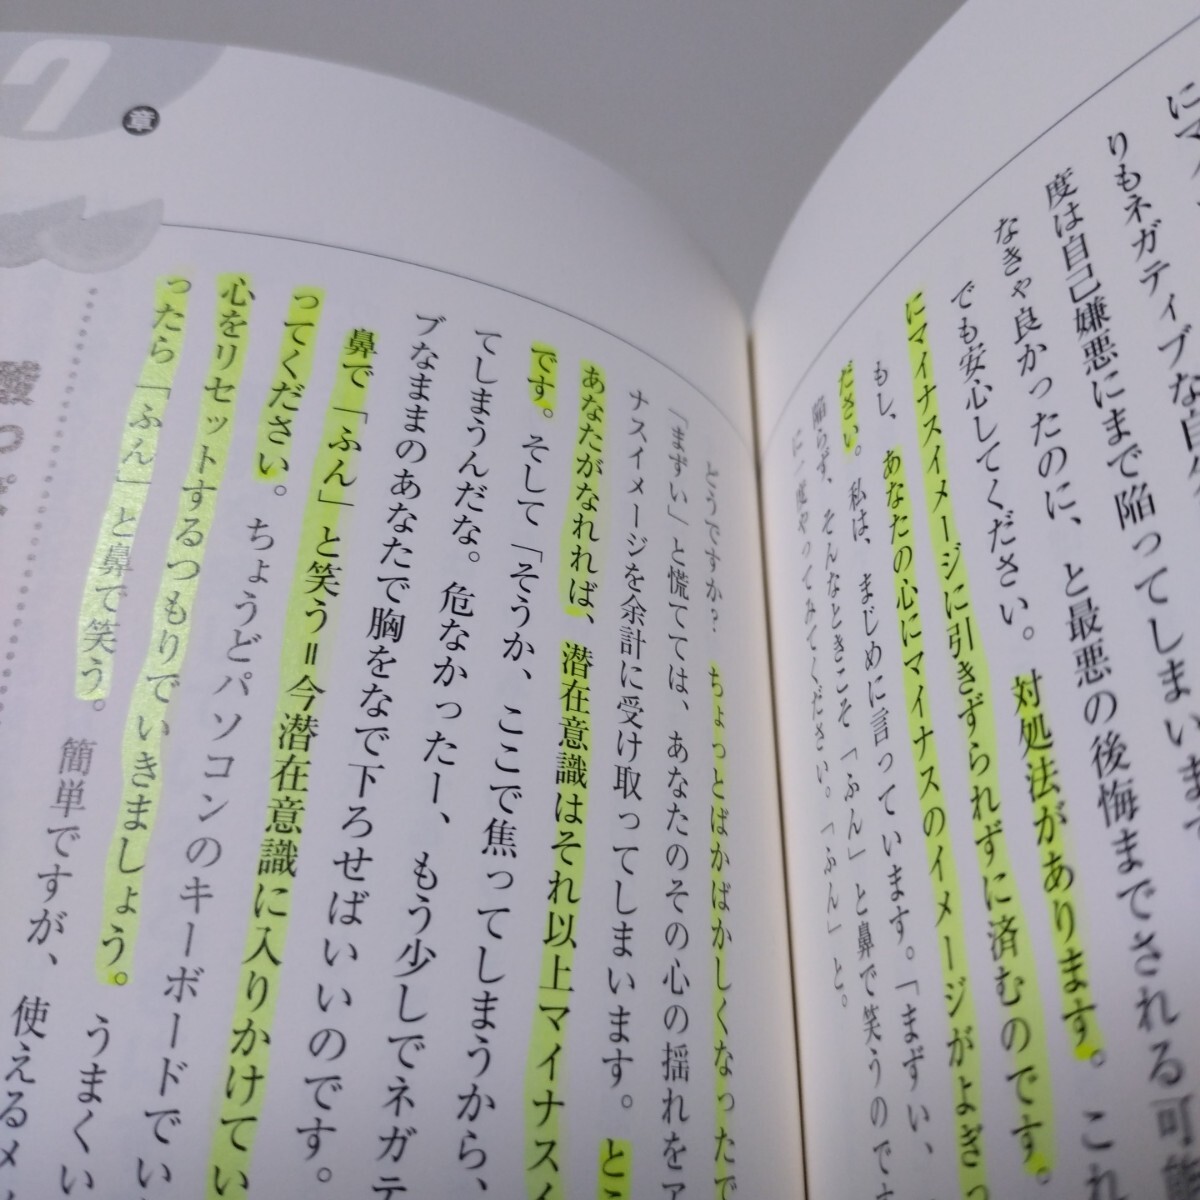 りもネガティブな自分
度は自己嫌悪にまで陥ってしまいます
なきゃ良かったのに、と最悪の後悔までされる可能
でも安心してください。対処法があります。これ
にマイナスイメージに引きずられずに済むのです。
もし、あなたの心にマイナスのイメージがよぎっ
ださい。私は、まじめに言っています。「まずい、
陥らず、そんなときこそ「ふん」と鼻で笑うのです
に一度やってみてください。「ふん」と。
どうですか？ ちょっとばかばかしくなったで
「まずい」と慌てては、あなたのその心の揺れをア
ナスイメージを余計に受け取ってしまいます。とこ
あなたがなれれば、潜在意識はそれ以上マイナスイ
です。そして「そうか、ここで焦ってしまうから、
てしまうんだな。危なかったー、もう少しでネガテ
ブなままのあなたで胸をなで下ろせばいいのです。
鼻で「ふん」と笑う＝今潜在意識に入りかけてい
ってください。ちょうどパソコンのキーボードでい
心をリセットするつもりでいきましょう。うまくい
ったら「ふん」と鼻で笑う。簡単ですが、使えるメ
7章